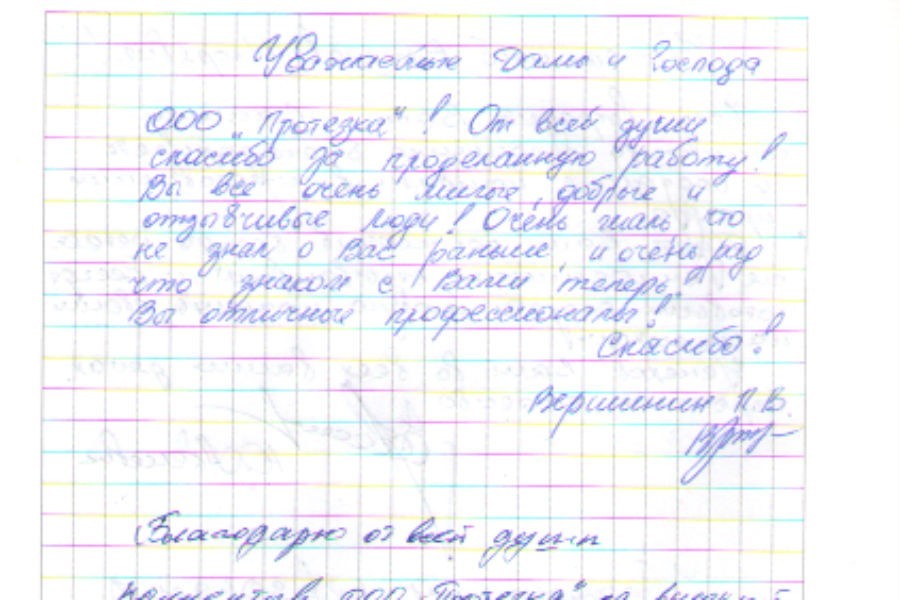 Уважаемые Дамы и Господа
ООО "Протезка"! От всей души
спасибо за проделанную работу!
Вы все очень милые, добрые и
отзывчивые люди! Очень жаль что
не знал о Вас раньше, и очень рад
что знаком с Вами теперь!
Вы отличные профессионалы!
Спасибо!
Вершинин К.В.
Благодарю от всей души
Коллектив ООО "Протезка" за